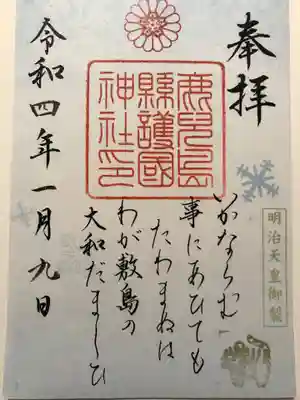 奉拝
鹿兒島
縣護國
神社印
明治天皇御製
いかならむ
事にあひても
たわまぬは
わが敷島の
大和だましひ
令和四年一月九日